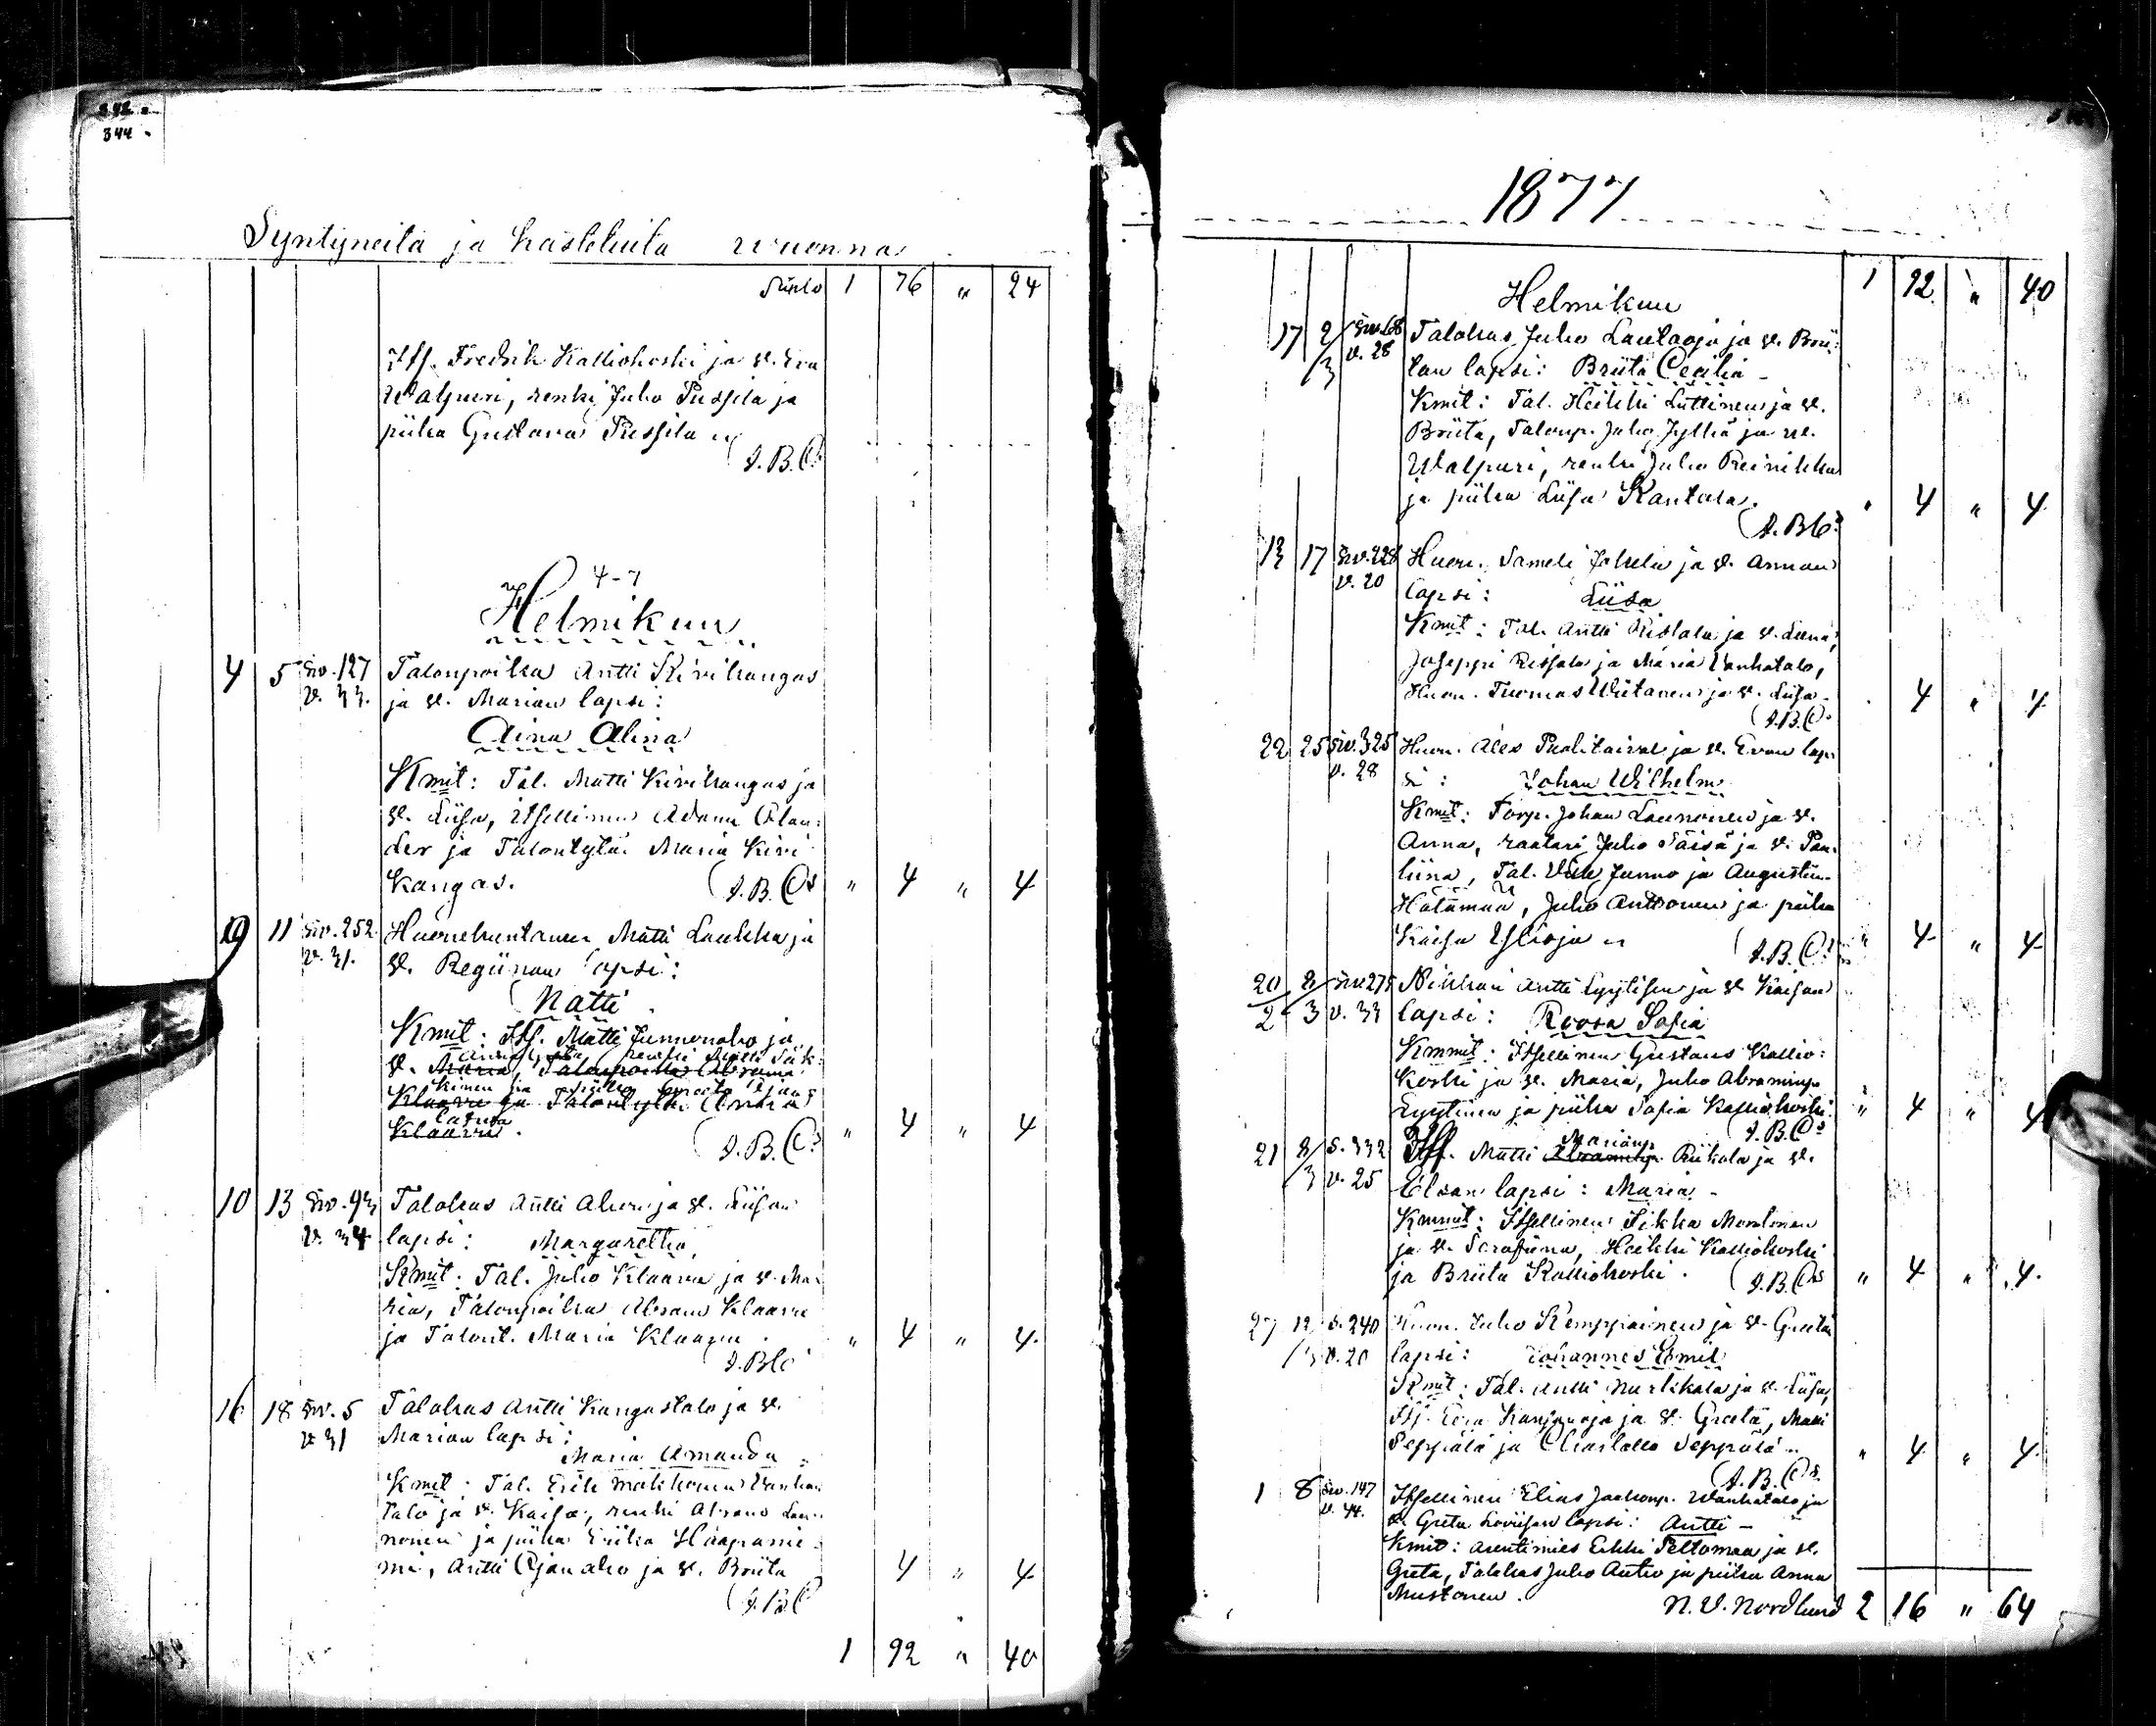 344
Syntyneitä ja kastetuita wuonna
Siirto 1 76 " 24
Itf. Fredrik Kalliokoski ja v. Eva
Walpuri, renki Juho Pussila ja
piika Gustava Pussila
A.B.C:s
4-7
Helmikuu
4 5 siv. 127 Talonpoika Antti Kivikangas
v. 33. ja v. Marian lapsi:
Aina Alina
Kmit: Tal. Matti Kivikangas ja
v. Liisa, Itsellinen Adam Olan:
der ja Talontytär Maria Kivi
kangas. A.B.C:s " 4 " 4
9 11 siv. 252 Huonekuntainen Matti Laukka ja
v. 31. v. Regiinan lapsi:
Matti
Kmit: Itf. Matti Junnonaho ja
v. Maria, Talonpoika Abram
Klaavu ja Talontytär Maria
Klaavu. A.B.C:s " 4 " 4
10 13 siv. 93 Talokas Antti Ahon ja v. Liisan
v. 34 lapsi: Margaretha
Kmit: Tal. Juho Klaavu ja v. Ma
ria, Talonpoika Abram Klaavu
ja Talont. Maria Klaavu " 4 " 4
A.B.C
16 18 siv. 5 Talokas Antti Kangastalo ja v.
v. 31 Marian lapsi:
Maria Amanda
Kmit: Tal. Erik Matkonen Vanha
talo ja v. Kaisa, renki Abram Lau
nonen ja piika Eriika Haapanie
mi, Antti Ojanaho ja v. Briita 4 " 4
A.B.C
1 92 " 40
1877
Helmikuu 1 92 " 40
17 2/3 siv. 68 Talokas Juho Lautaoja ja v. Brii:
v. 28 tan lapsi: Briita Cecilia
Kmit: Tal. Heikki Luttinen ja v.
Briita, Talonp. Juho Jylhä ja v.
Walpuri, renki Juho Reinikka
ja piika Liisa Kantola. " 4 " 4
A.B.C:s
13 17 siv. 228 Huon. Sameli Jokela ja v. Annan
v. 20 lapsi: Liisa
Kmit: Tal. Antti Rislala ja v. Leena,
Joseppi Rissala ja Maria Vanhatalo,
Huon. Tuomas Wiitanen ja v. Liisa. 4 " 4
A.B.C:s
22 25 siv. 325 Huon. Alex Puolitaival ja v. Evan lap
v. 28 si: Johan Wilhelm
Kmit: Torp. Johan Launonen ja v.
Anna, raatari Juho Säisä ja v. Pau
liina, Tal. Junno ja Augustiina
Hätämaa, Juho Anttonen ja piika
Kaisa Ylioja A.B.C:s " 4 " 4
20/2 2/3 siv. 275 Nikkari Antti Lyytisen ja v. Kaisan
v. 33 lapsi: Roosa Sofia
Kmmit: Itsellinen Gustaus Kallio:
koski ja v. Maria, Juho Abraminp.
Lyytinen ja piika Sofia Kalliokoski. " 4 " 4
A.B.C:s
21 2/3 s. 332 Itf. Matti Abraminp. Marianp. Riikala ja v.
v. 25 Elsan lapsi: Maria
Kmmit: Itsellinen Iikka Montonen
ja v. Serafiina, Heikki Kalliokoski
ja Briita Kalliokoski. A.B.C:s " 4 " 4.
27 12/3 s. 240 Huon. Juho Kemppainen ja v. Greetan
v. 20 lapsi: Johannes Emil
Kmit: Tal. Antti Nurkkala ja v. Liisa,
Itf. Eera Kangasoja ja v. Greeta, Matti
Seppälä ja Charlotta Seppälä " 4 " 4
A.B.C:s
1 8 siv. 147 Itsellinen Elias Jaakonp. Wanhatalo ja
v. 44. v. Greta Loviisan lapsi: Antti
Kmit: Arentimies Erkki Peltomaa ja v.
Greta, Talokas Juho Autio ja piika Anna
Mustonen. N.V. Nordlund 2 16 " 64